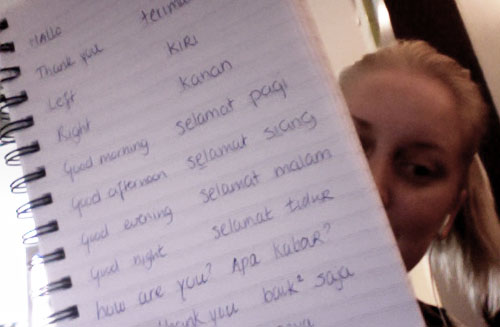 HALLO
Thank you terima
Left KIRI
Right Kanan
Good morning selamat pagi
Good afternoon selamat siang
Good evening selamat malam
Good night selamat tidur
how are you? Apa Kabar?
thank you baik² saja